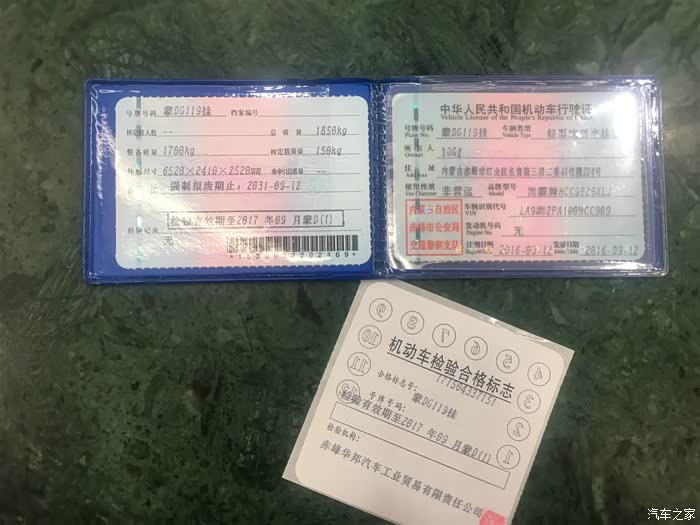 号牌号码 蒙DG119挂 档案编号
核定载人数 -- 总质量 1850kg
整备质量 1700kg 核定载质量 150kg
外廓尺寸 6520×2410×2520mm 准牵引总质量 --
强制报废期止：2031-09-12
检验有效期至2017 年09 月蒙D(1)
检验记录
无
中华人民共和国机动车行驶证
Vehicle License of the People's Republic of China
号牌号码 Plate No. 蒙DG119挂 车辆类型 Vehicle Type
所有人 Owner
住址 Address 内蒙古赤峰市红山区长青街
使用性质 Use Character 非营运 品牌型号 Model
内蒙古自治区
赤峰市公安局
交通警察支队
车辆识别代号 VIN
发动机号码 Engine No. 无
注册日期 2016-09-12 发证日期 2016-09-12
9 8 7 6 5 4 3 2 1 10 11 12
机动车检验合格标志
合格标志号：771504337151
号牌号码：蒙DG119挂
检验有效期至2017 年09 月蒙D(1)
检验机构：
赤峰华邦汽车工业贸易有限责任公司
汽车之家